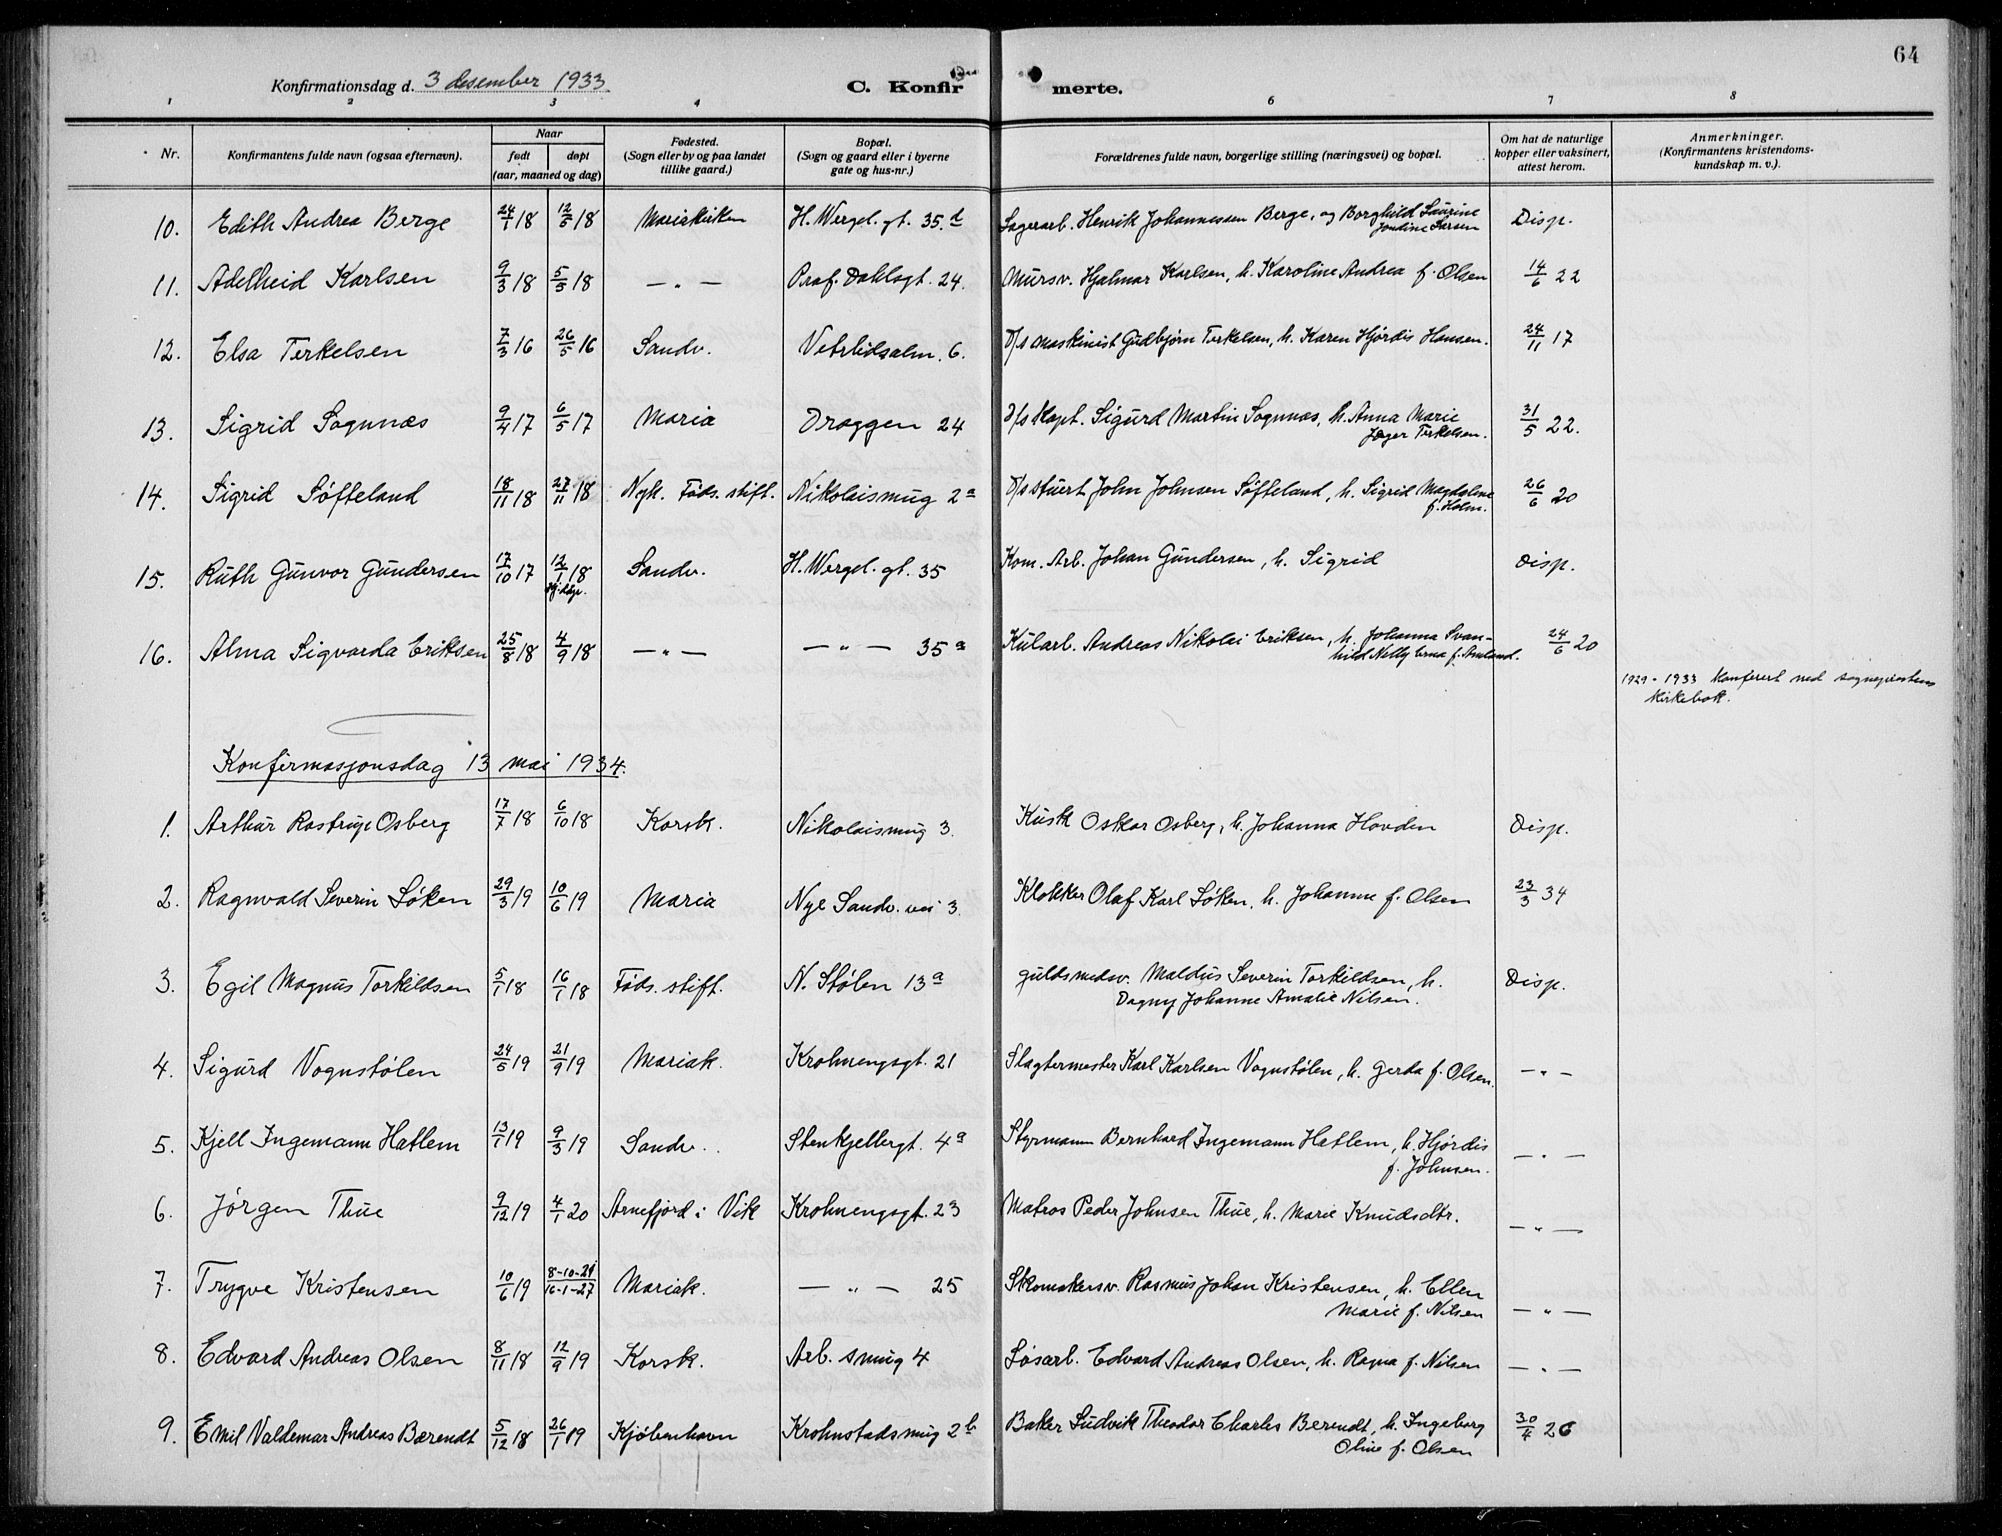 64
Konfirmationsdag d. 3 desember 1933. C. Konfirmerte.
1 2 3 4 6 7 8
Nr. Konfirmantens fulde navn (ogsaa efternavn). Naar født døpt (aar, maaned og dag) Fødested. (Sogn eller by og paa landet tillike gaard.) Bopæl. (Sogn og gaard eller i byerne gate og hus-nr.) Forældrenes fulde navn, borgerlige stilling (næringsvei) og bopæl. Om hat de naturlige kopper eller vaksinert, attest herom. Anmerkninger. (Konfirmantens kristendoms-kundskap m. v.).
10. Edith Andrea Berge 24/1 18 12/5 18 Mariekirken H. Wergel. gt. 35.d Lagerarb. Henrik Johannessen Berge, og Borghild Laurine Disp.
Jondine Larsen
11. Adelheid Karlsen 9/3 18 5/5 18 — " — Prof. Dahlsgt. 24. Mursv. Hjalmar Karlsen, h. Karoline Andrea f. Olsen 14/6 22
12. Elsa Terkelsen 7/3 16 26/5 16 Sandv. Vetrlidsalm. 6. D/s maskinist Gudbjørn Terkelsen, h. Karen Hjørdis Hansen. 24/11 17
13. Sigrid Sognnæs 9/4 17 6/5 17 Maria Dreggen 24 D/s Kapt. Sigurd Martin Sognnæs, h. Anna Marie 31/5 22.
Jæger Terkelsen.
14. Sigrid Søfteland 18/11 18 27/11 18 Nyk. Føds. stift. Nikolaismug 2a D/s stuert John Johnsen Søfteland, h. Sigrid Magdalene 26/6 20
f. Holm.
15. Ruth Gunvor Gundersen 17/10 17 12/1 18 Sandv. H. Wergel. gt. 35 Kom. Arb. Johan Gundersen, h. Sigrid Disp.
16. Alma Sigvarda Eriksen 25/8 18 4/9 18 — " — — " — 35a Kularb. Andreas Nikolai Eriksen, h. Johanna Svan- 24/6 20
hild Nelly Erna f. Amland.
1929 - 1933 Konferert med sogneprestens
kirkebok.
Konfirmasjonsdag 13 mai 1934.
1. Arthur Rostrup Osberg 17/7 18 6/10 18 Korsk. Nikolaismug 3. Kusk Oskar Osberg, h. Johanna Hovden Disp.
2. Ragnvald Severin Søken 29/3 19 10/6 19 Maria Nye Sandv. vei 3. Klokker Olaf Karl Søken, h. Johanne f. Olsen 23/3 34
3. Egil Magnus Torkildsen 5/1 18 16/1 18 Føds. stift. N. Stølen 13a Guldsmedsv. Maldus Severin Torkildsen, h. Disp.
Dagny Johanne Amalie Nilsen.
4. Sigurd Vognstølen 24/5 19 21/9 19 Mariak. Krohnengsgt. 21 Slagtermester Karl Karlsen Vognstølen, h. Gerda f. Olsen. — " —
5. Kjell Ingemann Hatlem 13/1 19 9/3 19 Sandv. Stenkjellergt. 4a Styrmann Bernhard Ingemann Hatlem, h. Hjørdis — " —
f. Johnsen.
6. Jørgen Thue 9/12 19 4/1 20 Arnefjord i Vik Krohnengsgt. 23 Matros Peder Johnsen Thue, h. Marie Knudsdtr. — " —
7. Trygve Kristensen 10/6 19 8-10-21/16-1-27 Mariak. — " — 25 Skomakersv. Rasmus Johan Kristensen, h. Ellen
Marie f. Nilsen — " —
8. Edvard Andreas Olsen 8/11 18 12/9 19 Korsk. Arb. smug 4 Løsarb. Edvard Andreas Olsen, h. Ragna f. Nilsen — " —
9. Emil Valdemar Andreas Bærendt 5/12 18 26/1 19 Kjøbenhavn Krohnstadsmug 2b Baker Ludvik Theodor Charles Berendt, h. Ingeborg 30/4 26
Oline f. Olsen